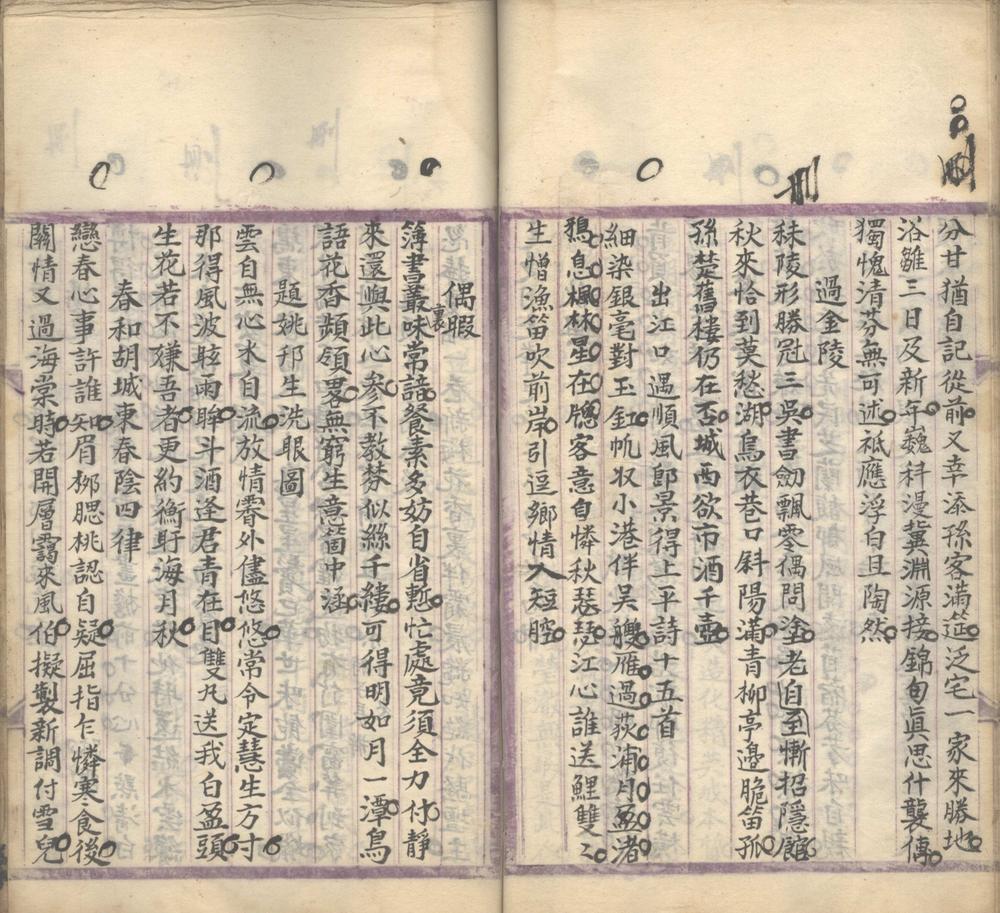 刪
分甘猶自記從前又幸添孫客滿筵泛宅一家來勝地
浴雛三日及新年巍科漫冀淵源接錦句眞思什襲傳
獨愧清芬無可述祗應浮白且陶然
過金陵
刪
秣陵形勝冠三吳書劒飄零偶問塗老自至慚招隱館
秋來恰到莫愁湖烏衣巷口斜陽滿青柳亭邊脆笛孤
孫楚舊樓仍在否城西欲市酒千壺
出江口遇順風卽景得上平詩十五首
細染銀毫對玉釭帆収小港伴吳艭雁過荻浦月盈渚
鵶息楓林星在牕客意自憐秋瑟瑟江心誰送鯉雙々
生憎漁笛吹前岸引逗鄉情入短腔
偶暇
簿書叢裏味常諳餐素多妨自省慙忙處竟須全力付靜
來還與此心參不教棼似絲千縷可得明如月一潭鳥
語花香頻領畧無窮生意箇中涵
題姚邘生洗眼圖
雲自無心水自流放情霄外儘悠悠常令定慧生方寸
那得風波眩兩眸斗酒逢君青在目雙丸送我白盈頭
生花若不嫌吾者更約衡盱海月秋
春和胡城東春陰四律
戀春心事許誰知眉柳腮桃認自疑屈指乍憐寒食後
關情又過海棠時若開層靄來風伯擬製新調付雪兒